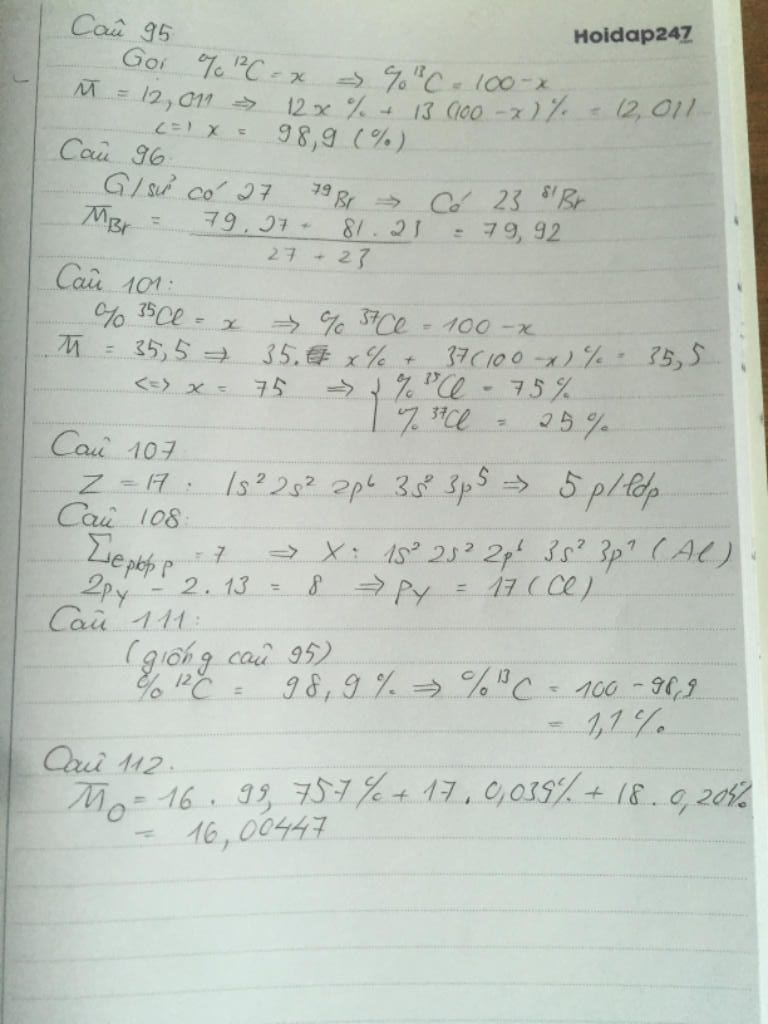 Câu 95
Hoidap247
Gọi % ¹²C = x ⇒ % ¹³C = 100 - x
M̅ = 12,011 ⇒ 12x % + 13 (100 - x) % = 12,011
<=> x = 98,9 (%)
Câu 96.
G/sử có 27 ⁷⁹Br ⇒ Có 23 ⁸¹Br
M̅Br = 79.27 + 81.23 / 27 + 23 = 79,92
Câu 101:
% ³⁵Cl = x ⇒ % ³⁷Cl = 100 - x
M̅ = 35,5 ⇒ 35. x% + 37(100 - x)% = 35,5
<=> x = 75 ⇒ { % ³⁵Cl = 75%
% ³⁷Cl = 25%
Câu 107
Z = 17 : 1s² 2s² 2p⁶ 3s² 3p⁵ ⇒ 5 p/lớp
Câu 108:
Σe pbp p = 7 ⇒ X: 1s² 2s² 2p⁶ 3s² 3p¹ (Al)
2pY - 2.13 = 8 ⇒ pY = 17 (Cl)
Câu 111:
(giống câu 95)
% ¹²C = 98,9 % ⇒ % ¹³C = 100 - 98,9
= 1,1 %
Câu 112.
M̅O = 16 . 99,757% + 17. 0,039% + 18. 0,204%
= 16,00447